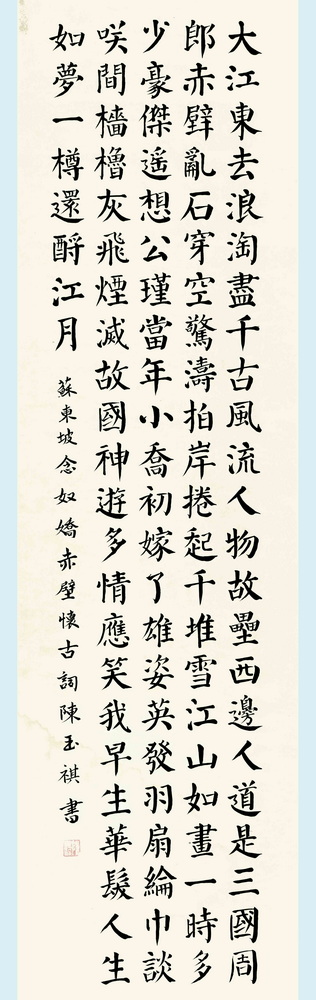 大江東去浪淘盡千古風流人物故壘西邊人道是三國周
郎赤壁亂石穿空驚濤拍岸捲起千堆雪江山如畫一時多
少豪傑遙想公瑾當年小喬初嫁了雄姿英發羽扇綸巾談
咲間檣櫓灰飛煙滅故國神遊多情應笑我早生華髮人生
如夢一樽還酹江月
蘇東坡念奴嬌赤壁懷古詞陳玉祺書